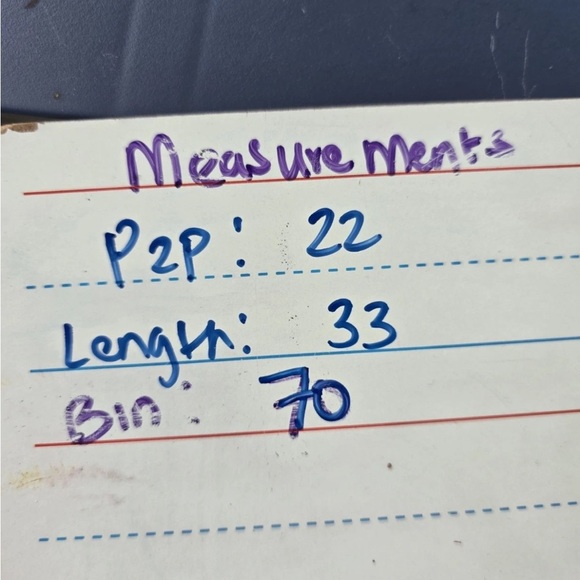 Measurements
P2P: 22
Length: 33
Bin: 70